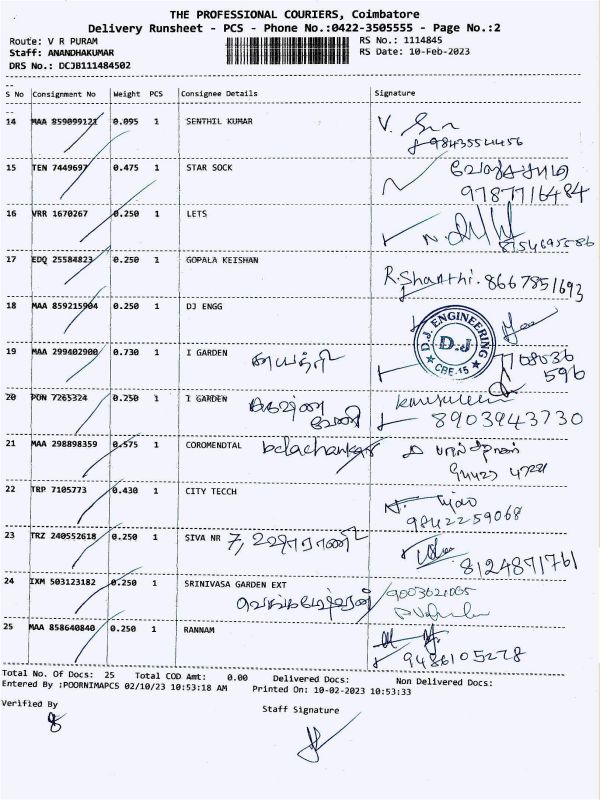 THE PROFESSIONAL COURIERS, Coimbatore
Delivery Runsheet - PCS - Phone No.:0422-3505555 - Page No.:2
Route: V R PURAM RS No.: 1114845
Staff: ANANDHAKUMAR RS Date: 10-Feb-2023
DRS No.: DCJB111484502
S No Consignment No Weight PCS Consignee Details Signature
14 MAA 859099121 0.095 1 SENTHIL KUMAR
15 TEN 7449697 0.475 1 STAR SOCK
9787716484
16 VRR 1670267 0.250 1 LETS
17 EDQ 25584823 0.250 1 GOPALA KEISHAN
R.Shanthi. 8667851693
18 MAA 859215904 0.250 1 DJ ENGG
D.J. ENGINEERING D.J CBE-15
19 MAA 299402900 0.730 1 I GARDEN காயத்ரி
7708036
596
20 PON 7265324 0.250 1 I GARDEN
வேணி 8903943730
21 MAA 298898359 0.575 1 COROMENDTAL balachankar
22 TRP 7105773 0.430 1 CITY TECCH
9842259068
23 TRZ 240552618 0.250 1 SIVA NR 7, உஷாராணி
8124871761
24 IXM 503123182 0.250 1 SRINIVASA GARDEN EXT
25 MAA 858640840 0.250 1 RANNAM
9486105278
Total No. Of Docs: 25 Total COD Amt: 0.00 Delivered Docs: Non Delivered Docs:
Entered By :POORNIMAPCS 02/10/23 10:53:18 AM Printed On: 10-02-2023 10:53:33
Verified By
Staff Signature